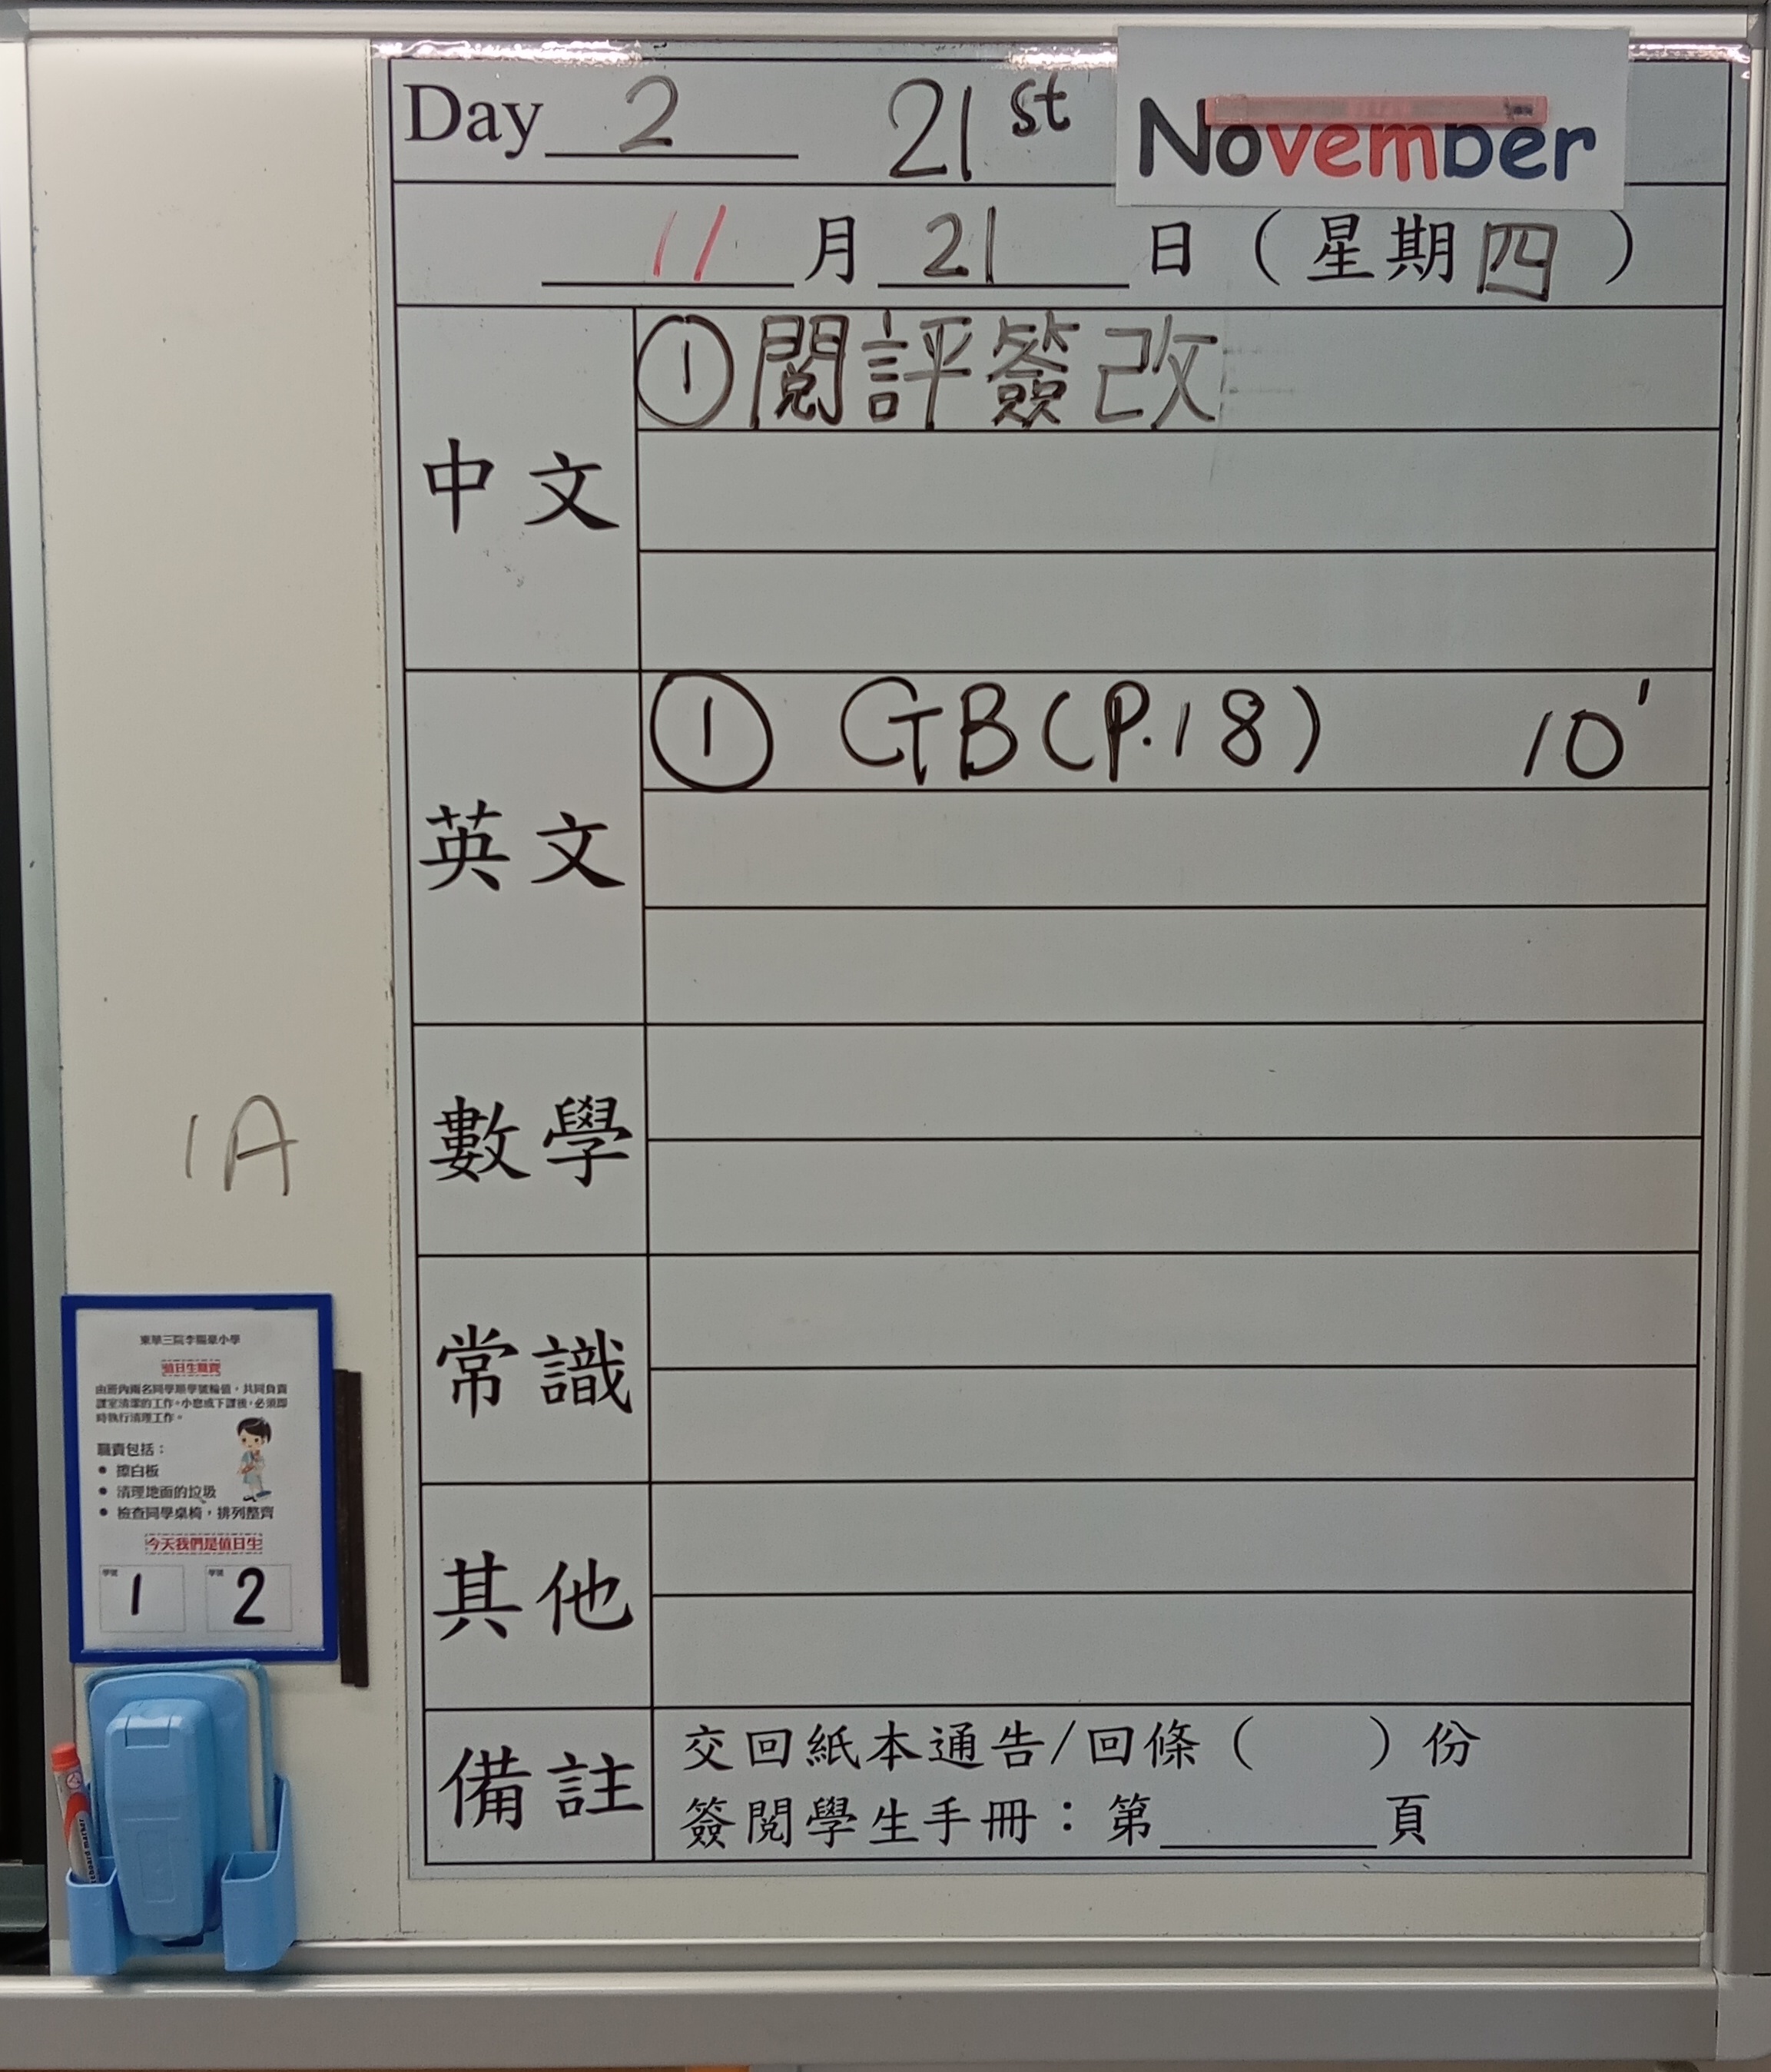 Day 2 21st November
11 月 21 日 ( 星期四 )
中文
①閱評簽改
英文
① GB (P.18) 10'
數學
常識
其他
備註
交回紙本通告/回條 ( ) 份
簽閱學生手冊：第______頁
1A
東華三院李賜豪小學
值日生職責
由班內兩名同學順學號輪值，共同負責
課室清潔的工作。小息或下課後，必須即
時執行清理工作。
職責包括：
• 擦白板
• 清理地面的垃圾
• 檢查同學桌椅，排列整齊
今天我們是值日生
學號 1 學號 2